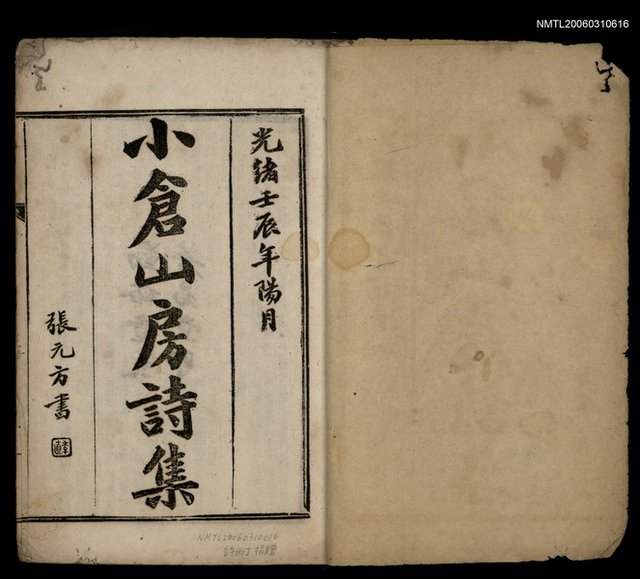 NMTL20060310616
光緒壬辰年陽月
小倉山房詩集
張元方書
NMTL20060310616